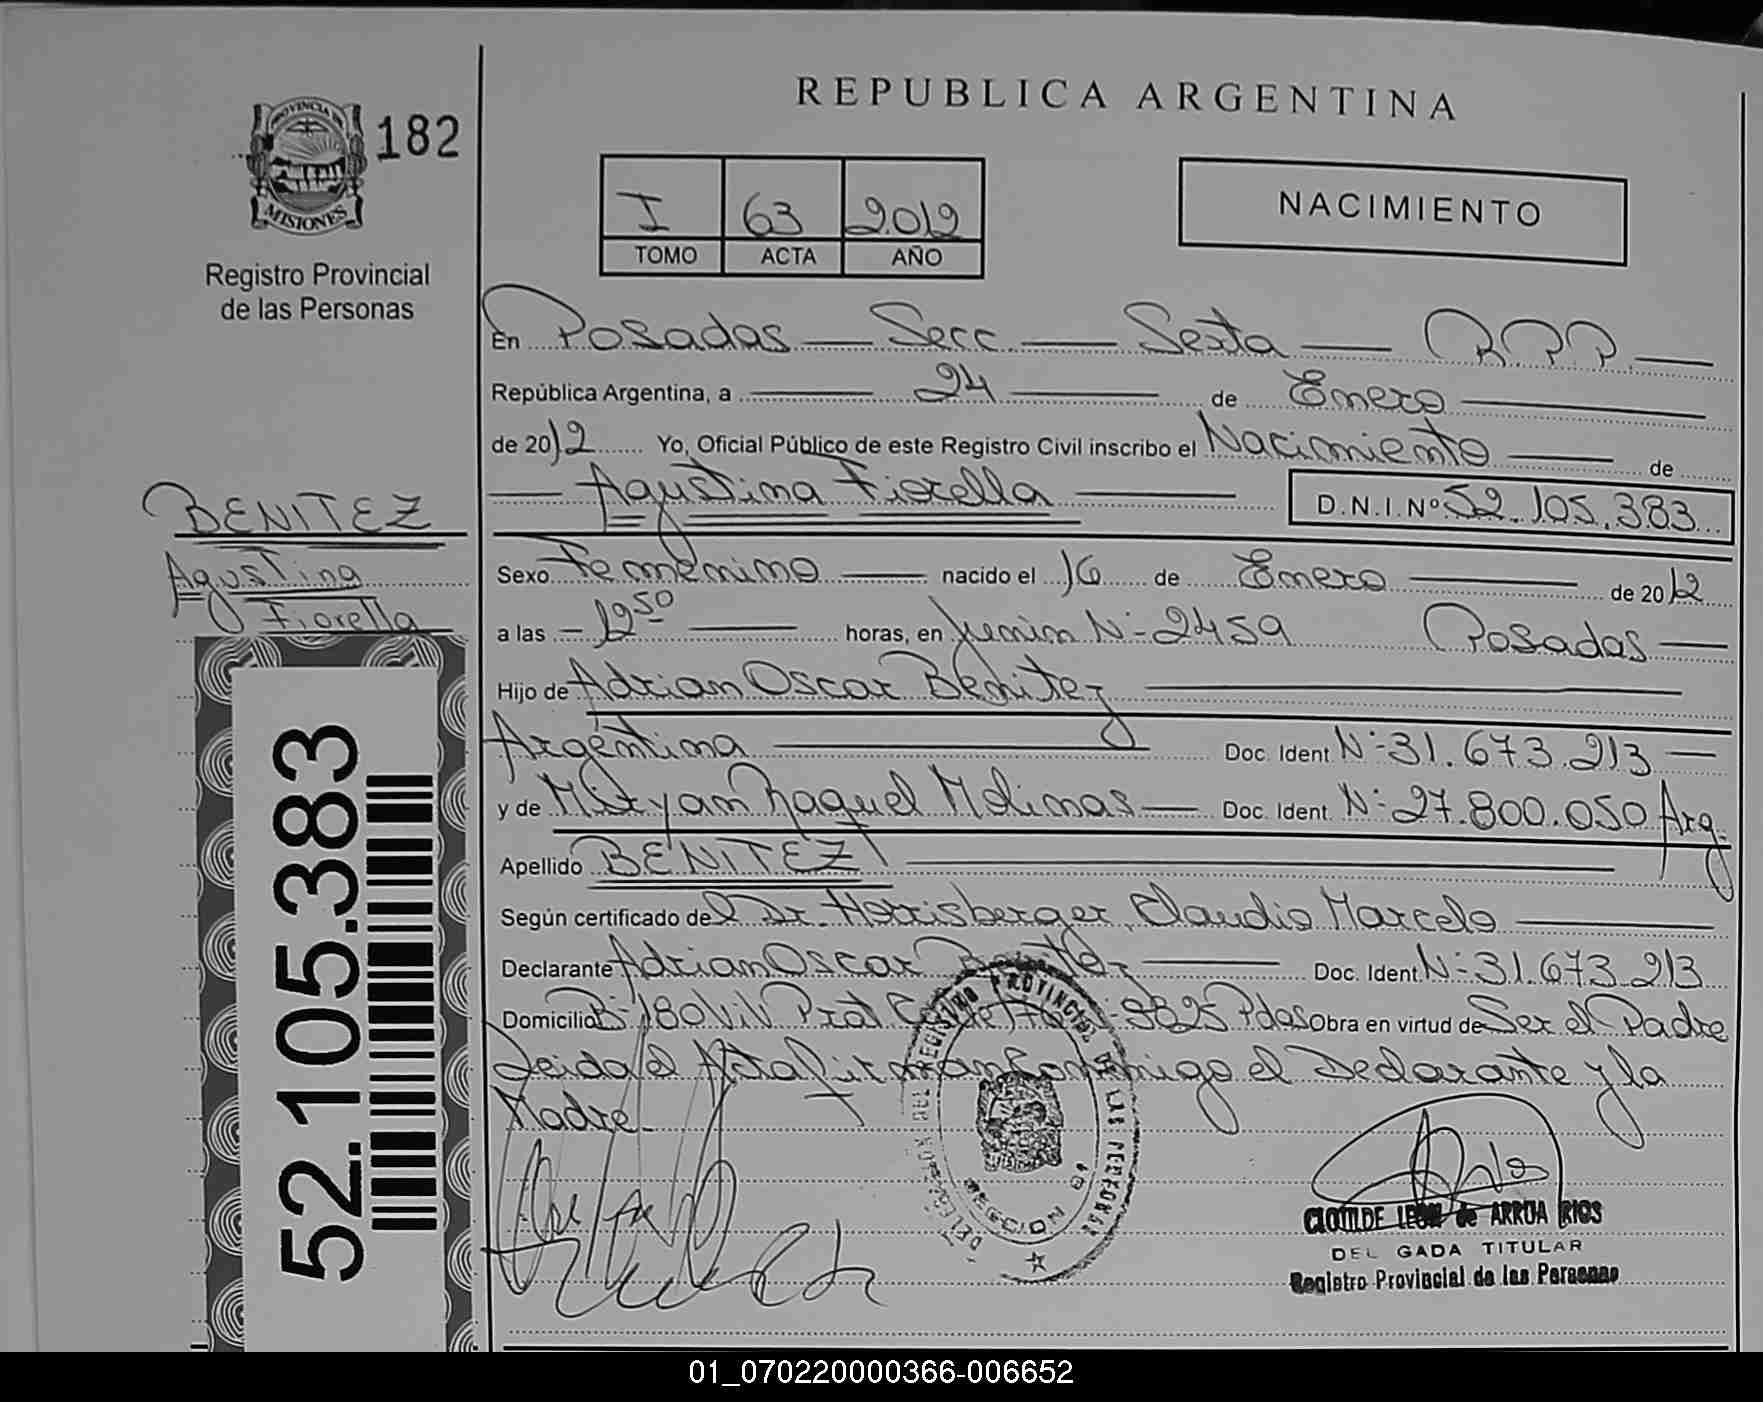 REPUBLICA ARGENTINA
PROVINCIA DE
MISIONES
182
Registro Provincial
de las Personas
I 63 2012
TOMO ACTA AÑO
NACIMIENTO
En Posadas — Secc — Sexta — R.P.P. —
República Argentina, a — 24 — de Enero —
de 2012 Yo, Oficial Público de este Registro Civil inscribo el Nacimiento — de
— Agustina Fiorella — D.N.I. Nº 52.105.383
BENITEZ
Agustina
Fiorella
Sexo Femenino — nacido el 16 de Enero — de 2012
a las — 12 50 — horas, en Junin N- 2459 Posadas —
Hijo de Adrian Oscar Benitez —
Argentina — Doc. Ident. N- 31.673.213 —
y de Miryam Raquel Molinas — Doc. Ident. N- 27.800.050 Arg.
Apellido BENITEZ —
Según certificado del Dr. Horrisberger, Claudio Marcelo —
Declarante Adrian Oscar Benitez — Doc. Ident. N- 31.673.213
Domicilio B- 180 Viv 9825 Pdas Obra en virtud de Ser el Padre
Leida el Acta firman Conmigo el Declarante y la
Madre.
52.105.383
DELEGACION DEL REGISTRO PROVINCIAL DE LAS PERSONAS
REGION
CLOTILDE LEON de ARRUA RIOS
DEL GADA TITULAR
Registro Provincial de las Personas
01_070220000366-006652